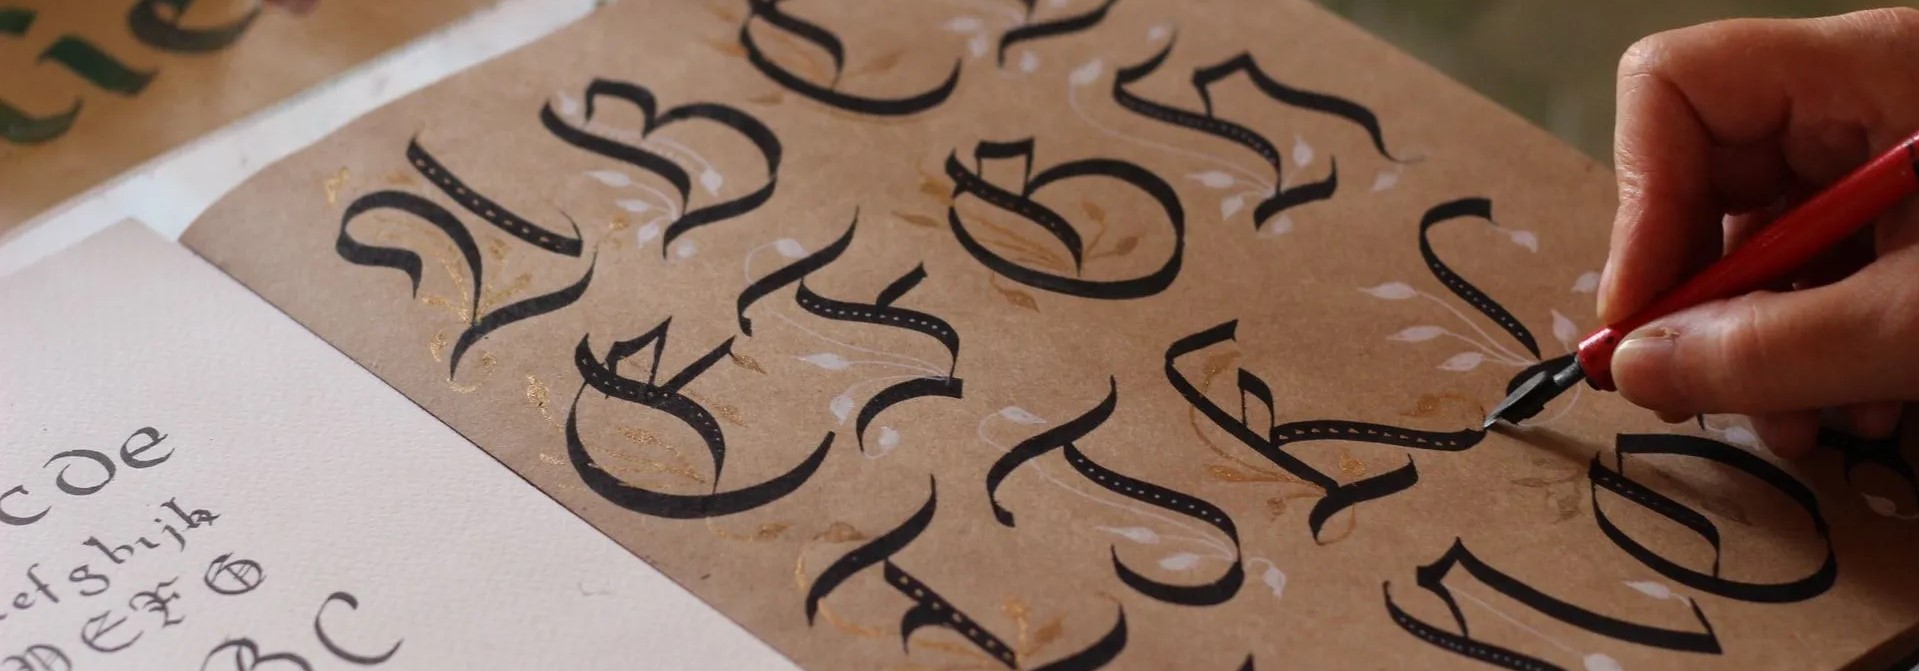 tie
A B C
E F G H
I J K L
N O
c de
ef ghijk
D E F G
B C